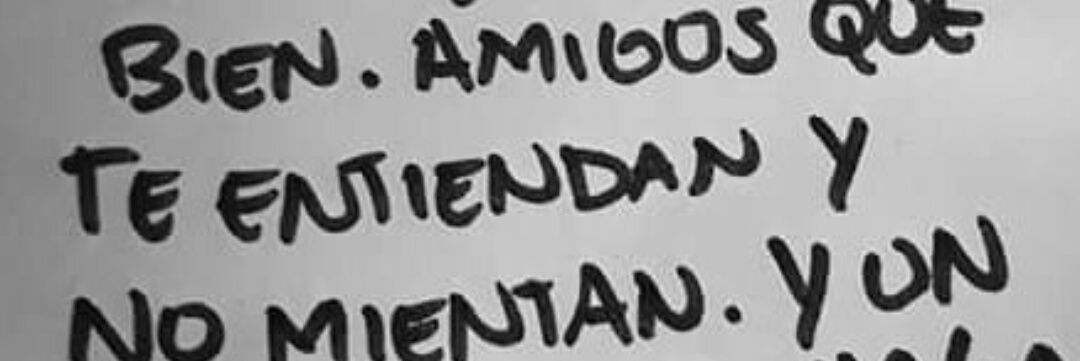 BIEN. AMIGOS QUE
TE ENTIENDAN Y
NO MIENTAN. Y UN